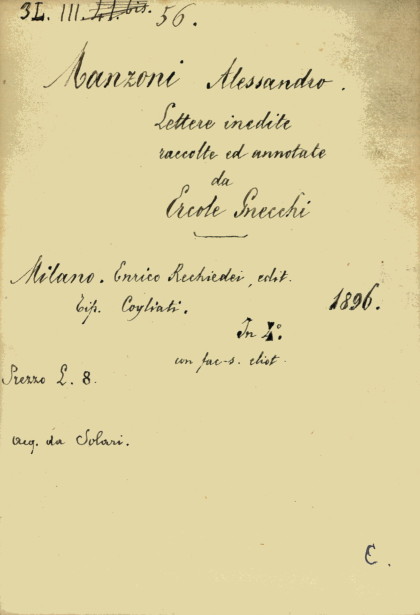 3L. III. 56.
Manzoni Alessandro.
Lettere inedite
raccolte ed annotate
da
Ercole Gnecchi
Milano. Enrico Rechiedei, edit.
Tip. Cogliati. 1896.
In 4°
con fac-s. eliot.
Prezzo L. 8.
acq. da Solari.
C.